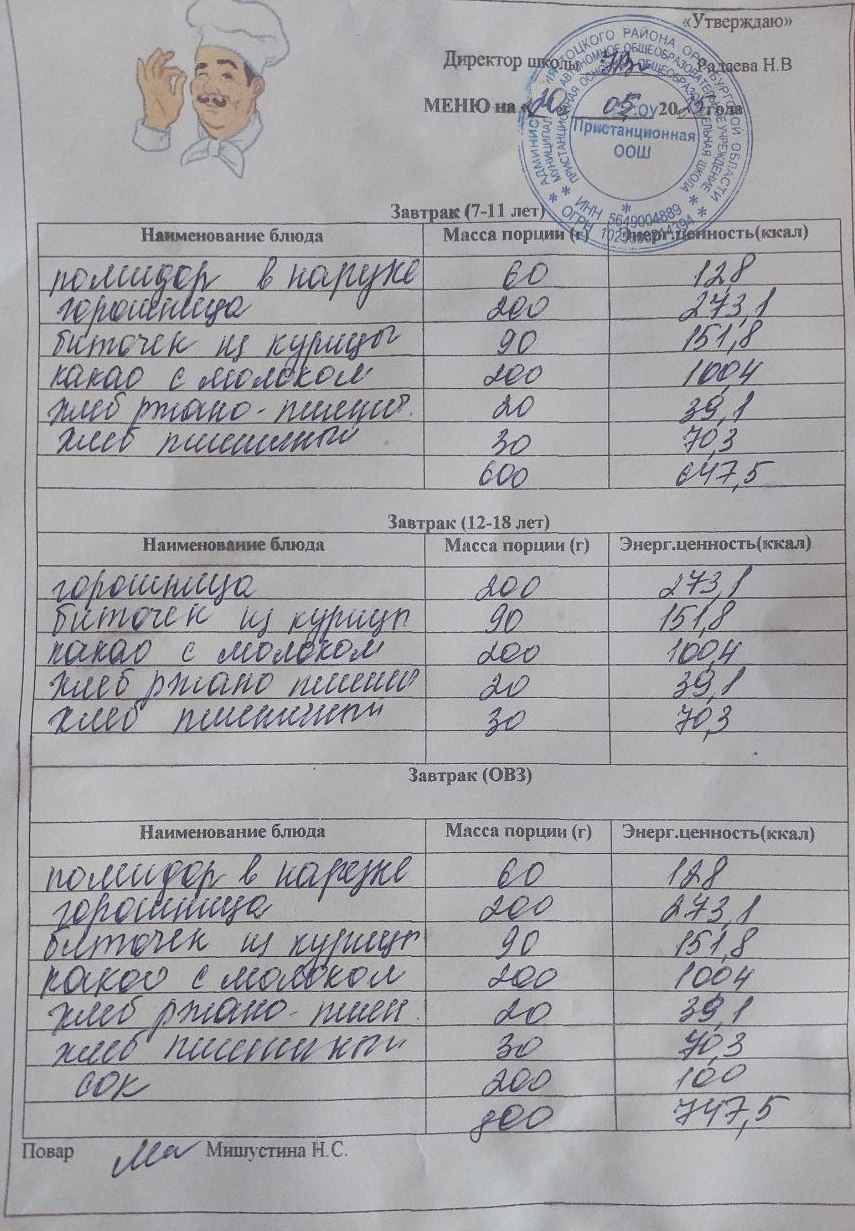 «Утверждаю»
Директор школы Радаева Н.В
МЕНЮ на «20» 05. 2025 года
Пристанционная
ООШ
ИНН 5649004889
Завтрак (7-11 лет)
Наименование блюда Масса порции (г) Энерг.ценность(ккал)
помидор в нарезке 60 12,8
горошница 200 273,1
биточек из курицы 90 151,8
какао с молоком 200 100,4
хлеб ржано-пшенич. 20 39,1
хлеб пшеничный 30 70,3
600 647,5
Завтрак (12-18 лет)
Наименование блюда Масса порции (г) Энерг.ценность(ккал)
горошница 200 273,1
биточек из курицы 90 151,8
какао с молоком 200 100,4
хлеб ржано пшенич 20 39,1
хлеб пшеничный 30 70,3
Завтрак (ОВЗ)
Наименование блюда Масса порции (г) Энерг.ценность(ккал)
помидор в нарезке 60 12,8
горошница 200 273,1
биточек из курицы 90 151,8
какао с молоком 200 100,4
хлеб ржано-пшен. 20 39,1
хлеб пшеничный 30 70,3
сок 200 100
800 747,5
Повар Мишустина Н.С.